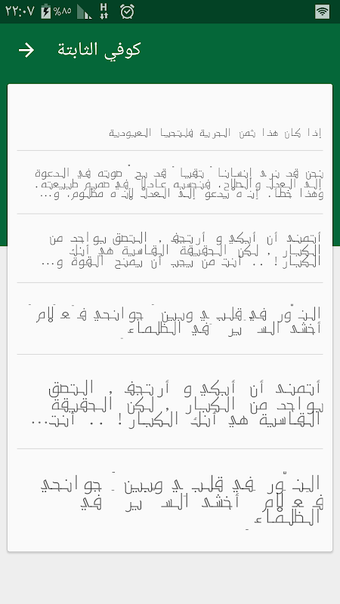 ٢٢:٠٧
%٨٥
H
كوفي الثابتة
إذا كان هذا ثمن الحرية فلتحيا العبودية
نحن قد نرى إنسانا " تقيا " قد بح صوته في الدعوة
إلى العدل والصلاح، فنحسبه عادلا في صميم طبيعته.
وهذا خطأ. إنه يدعو إلى العدل لأنه مظلوم. و...
أتمنى أن أبكي و أرتجف , التصق بواحد من
الكبار , لكن الحقيقة القاسية هي أنك
الكبار! .. أنت من يجب أن يمنح القوة و...
النّور في قلبي وبين جوانحي فعلام
أخشى السّير في الظلماء
أتمنى أن أبكي و أرتجف , التصق
بواحد من الكبار , لكن الحقيقة
القاسية هي أنك الكبار! .. أنت...
النّور في قلبي وبين جوانحي
فعلام أخشى السّير في
الظلماء